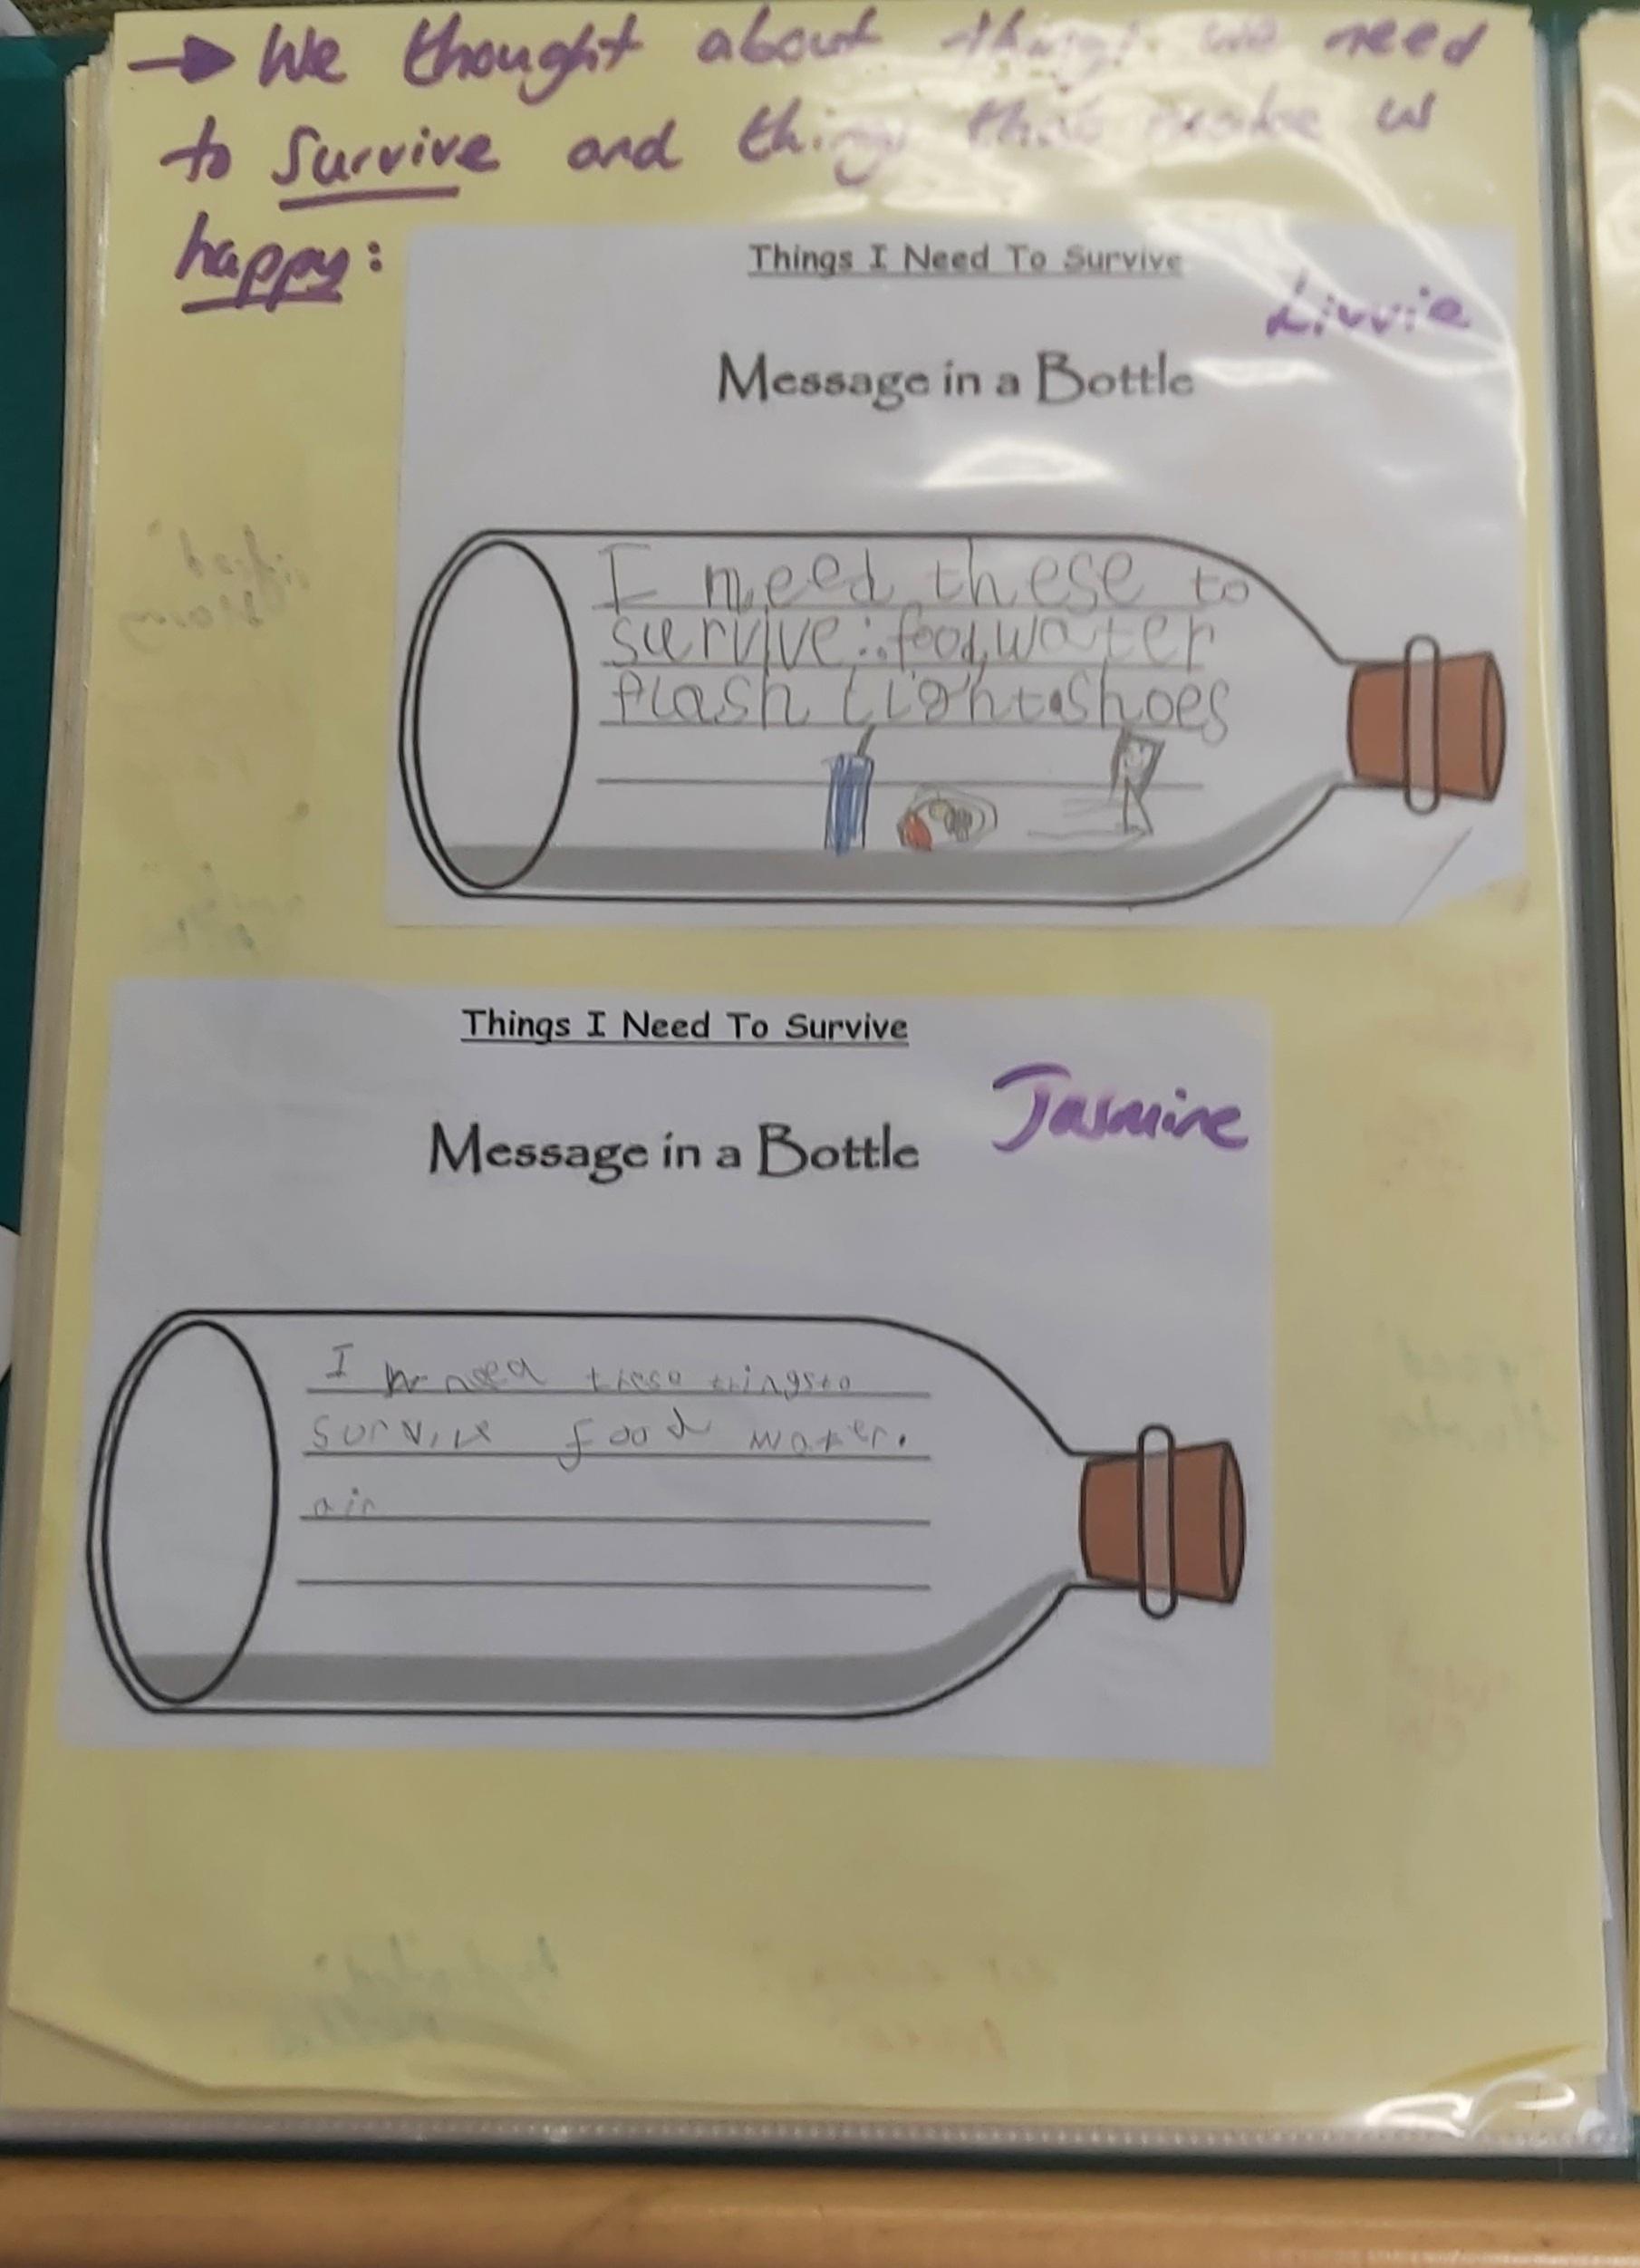 → We thought about things we need
to survive and things that make us
happy:
Things I Need To Survive
Livvie
Message in a Bottle
I need these to
survive: food, water
flash light shoes
Things I Need To Survive
Jasmine
Message in a Bottle
I need these tringsto
survive food water.
air